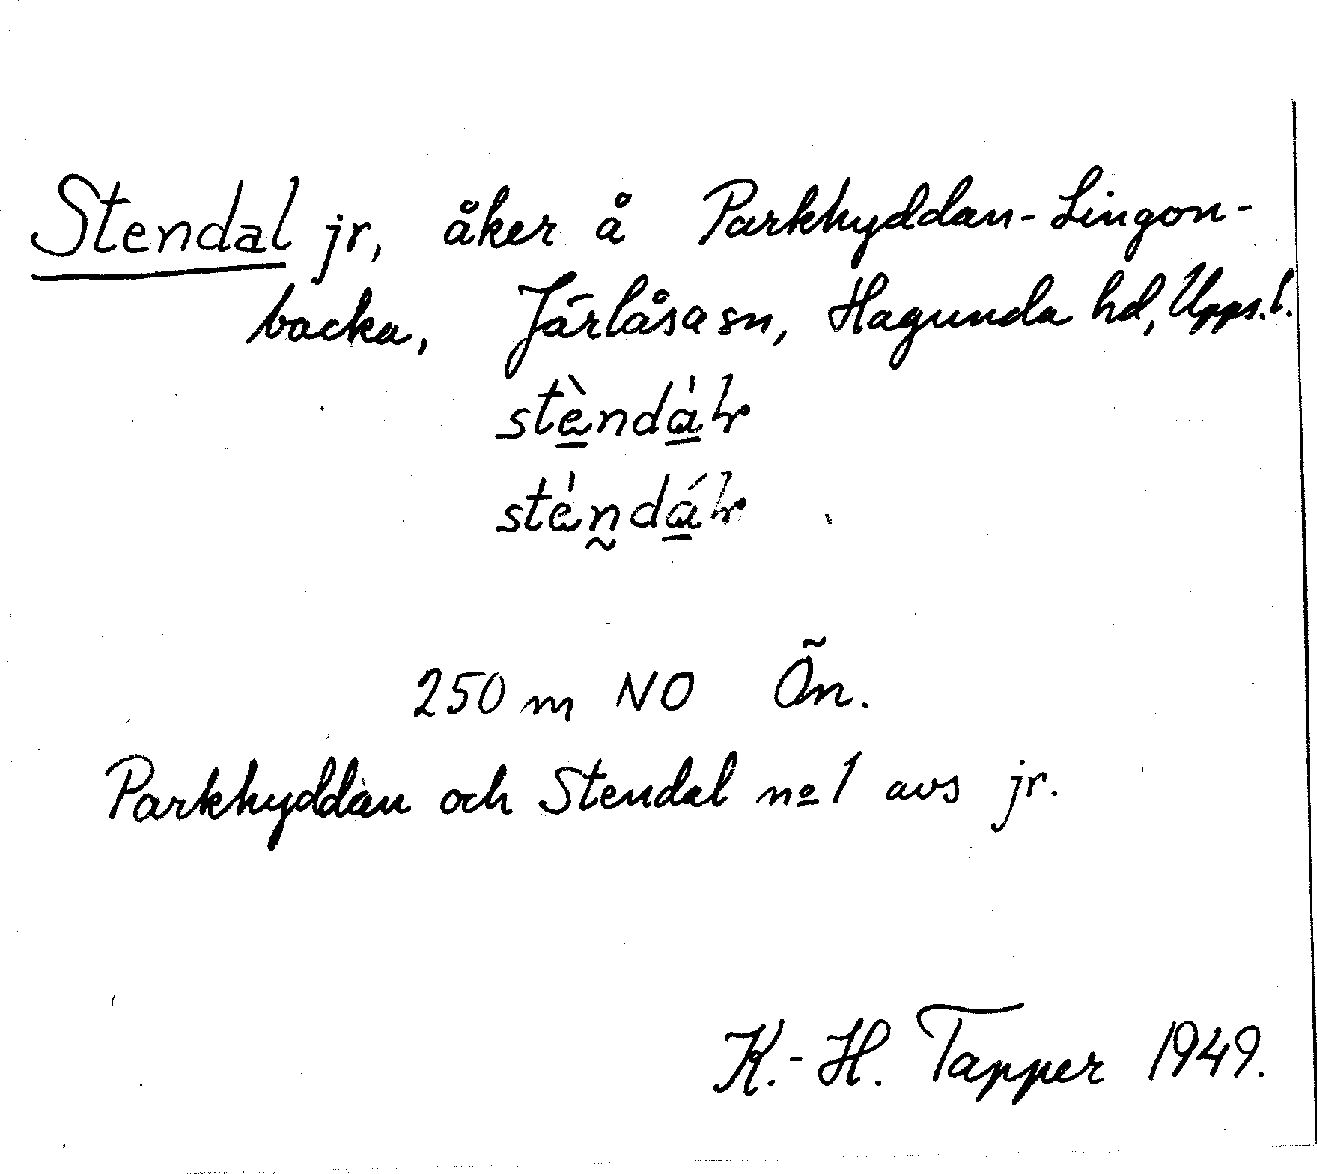 Stendal jr, åker å Parkhyddan-Lingon-
backa, Järlåsa sn, Hagunda hd, Upps. l.
250 m NO Ön.
Parkhyddan och Stendal no 1 avs jr.
K.-H. Tapper 1949.